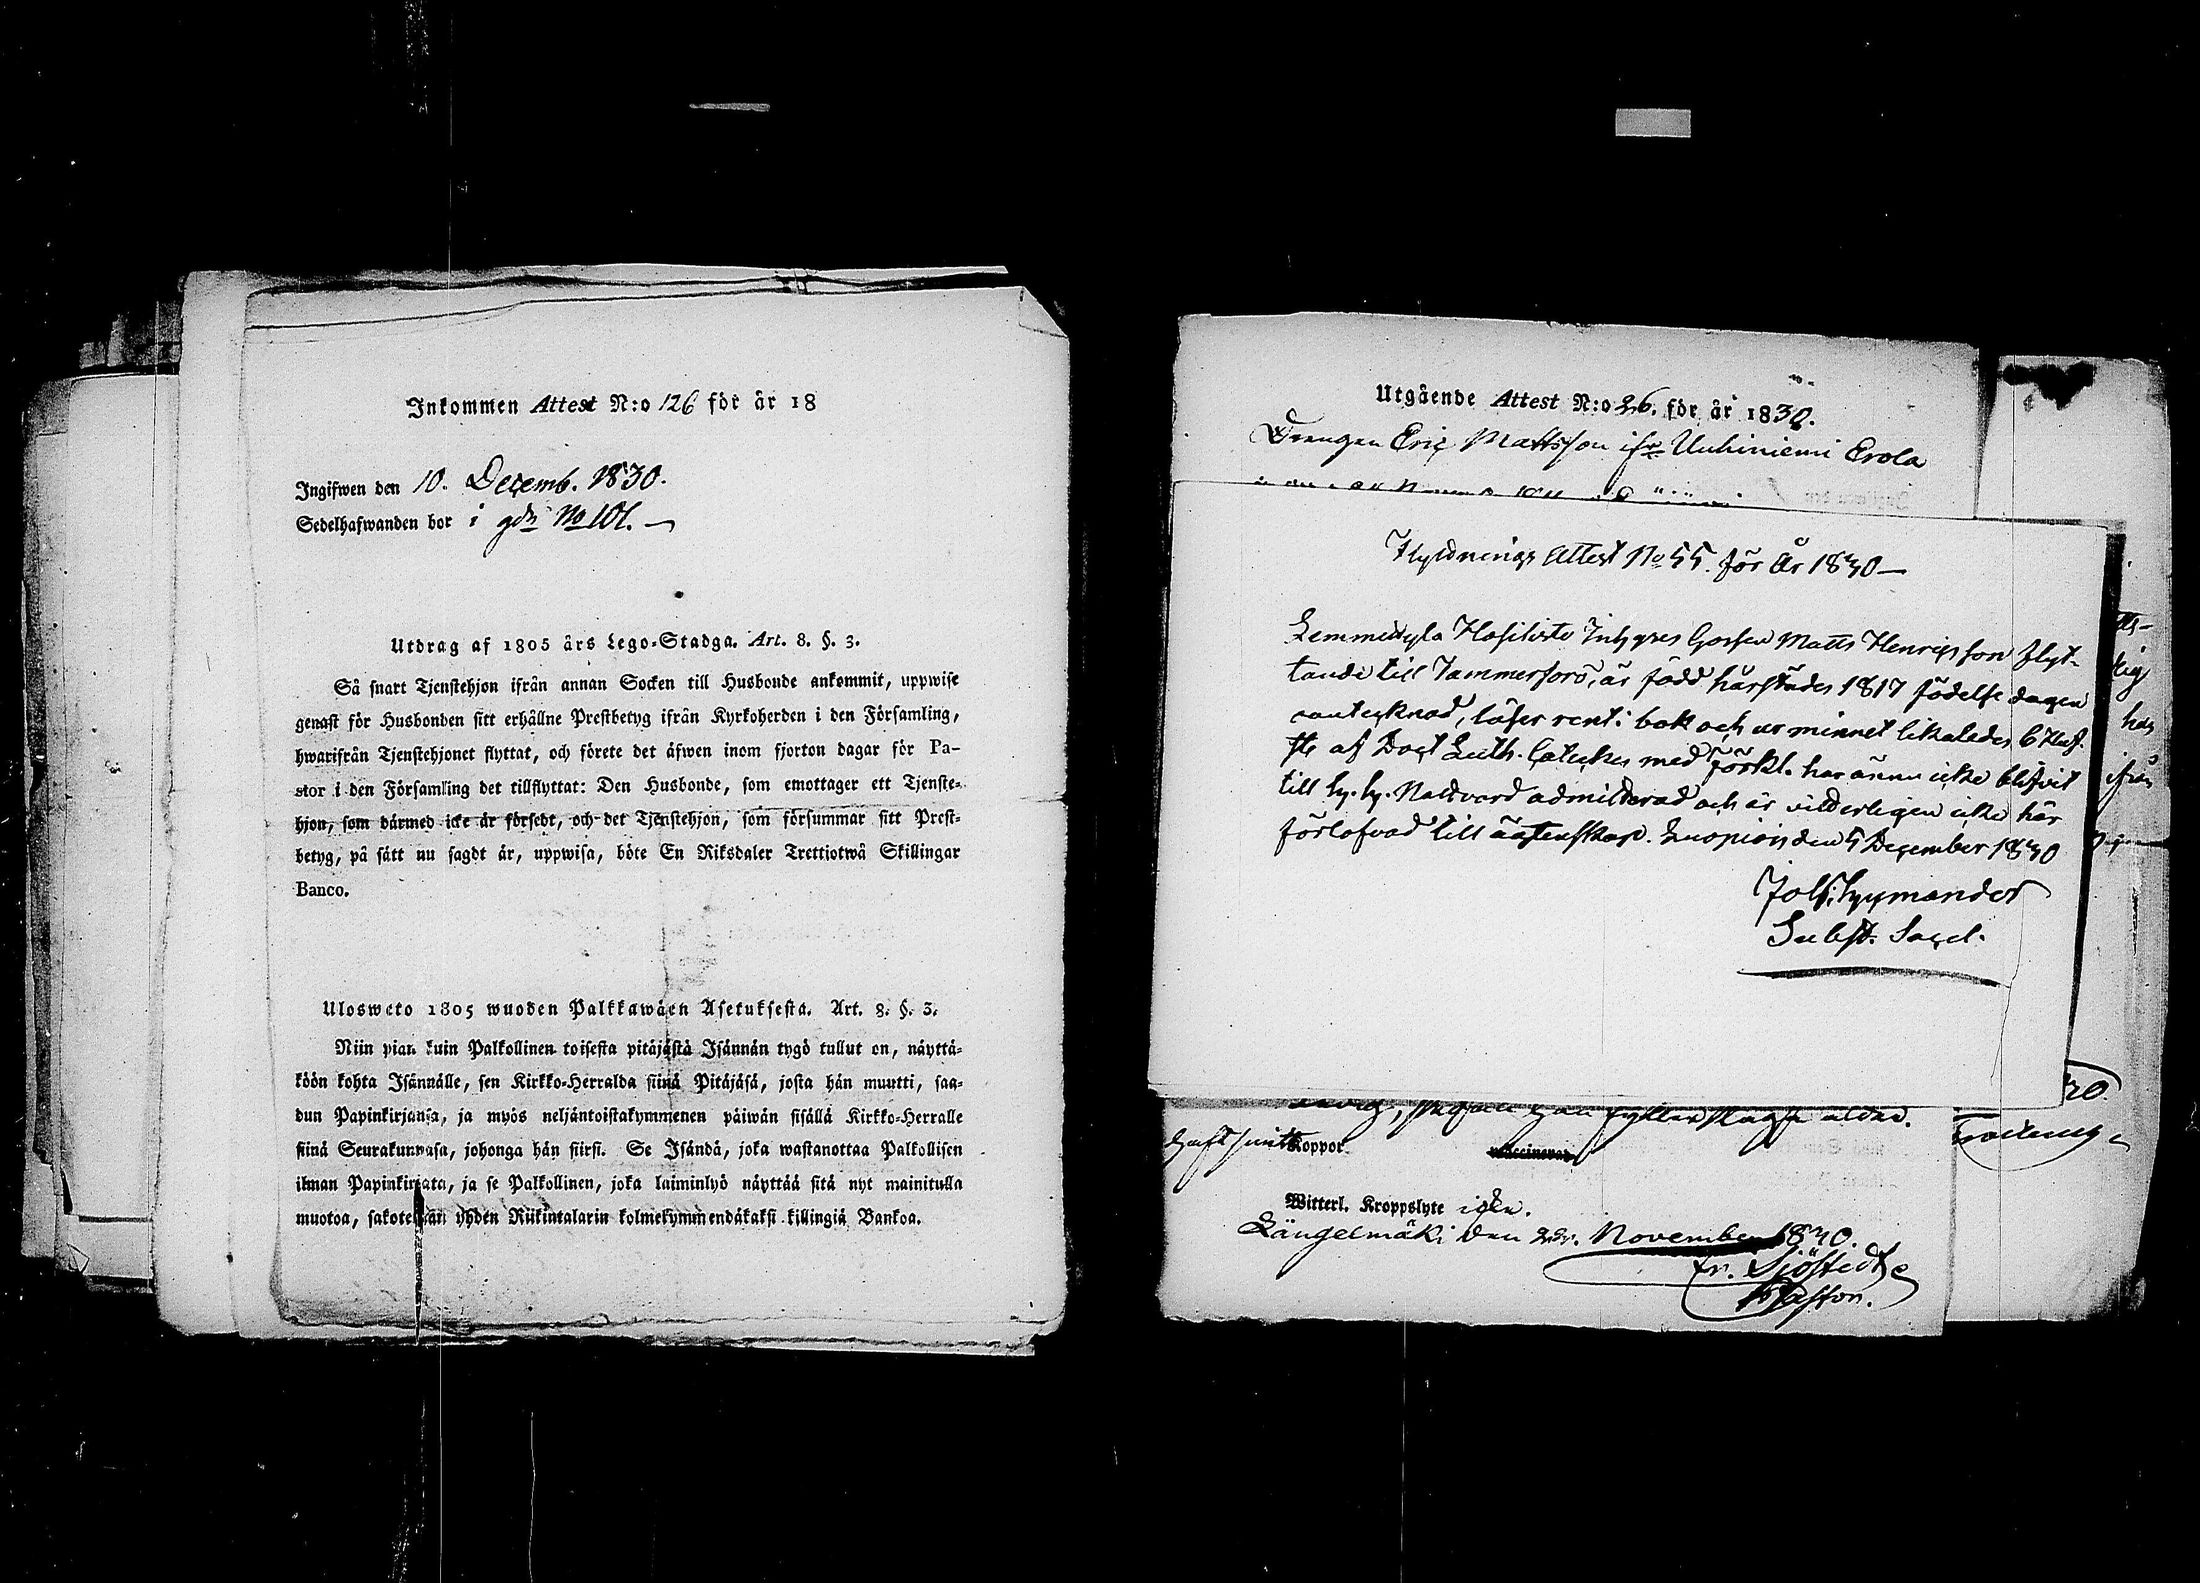 Inkommen Attest N:o 126 för år 18
Ingifwen den 10. Decemb. 1830.
Sedelhafwanden bor i gdn No 101. —
Utdrag af 1805 års Lego-Stadga. Art. 8. §. 3.
Så snart Tjenstehjon ifrån annan Socken till Husbonde ankommit, uppwise
genast för Husbonden sitt erhållne Prestbetyg ifrån Kyrkoherden i den Församling,
hwarifrån Tjenstehjonet flyttat, och förete det äfwen inom fjorton dagar för Pa-
stor i den Församling det tillflyttat: Den Husbonde, som emottager ett Tjenste-
hjon, som därmed icke är försedt, och det Tjenstehjon, som försummar sitt Prest-
betyg, på sätt nu sagdt är, uppwisa, böte En Riksdaler Trettiotwå Skillingar
Banco.
Ulosweto 1805 wuoden Palkkawäen Asetuksesta. Art. 8. §. 3.
Niin pian kuin Palkollinen toisesta pitäjästä Isännän tygö tullut on, näyttä-
köön kohta Isännälle, sen Kirkko-Herralda siinä Pitäjäsä, josta hän muutti, saa-
dun Papinkirjansa, ja myös neljäntoistakymmenen päiwän sisällä Kirkko-Herralle
siinä Seurakunnasa, johonga hän siirsi. Se Isändä, joka wastanottaa Palkollisen
ilman Papinkirjata, ja se Palkollinen, joka laiminlyö näyttää sitä nyt mainitulla
muotoa, sakotetan yhden Riikintalarin kolmekymmendäkaksi killingiä Bankoa.
Utgående Attest N:o 26. för år 1830.
Drengen Eric Mattsson ifrn Uuhiniemi Erola
Flyttnings Attest No 55. för år 1830 —
Lemmettylä Inhyses Gossen Matts Henricsson flyt-
tande till Tammerfors, är född härstädes 1817 födelse dagen
oantecknad, läser rent i bok och ur minnet likaledes 6 Huf.
st. af Doct Luth. Cateches med förkl. har ännu icke blifvit
till h. h. Nattvard admitterad och är vitterligen icke här
förlofvad till äctenskap. Luopiois den 5 December 1830
Joh. Hymander
Subst. Sacel.
ifrån
30.
Haft Koppor
Witterl. Kroppslyte icke.
Längelmäki den 22. November 1830.
Fr. Sjöstedt
Pastor.